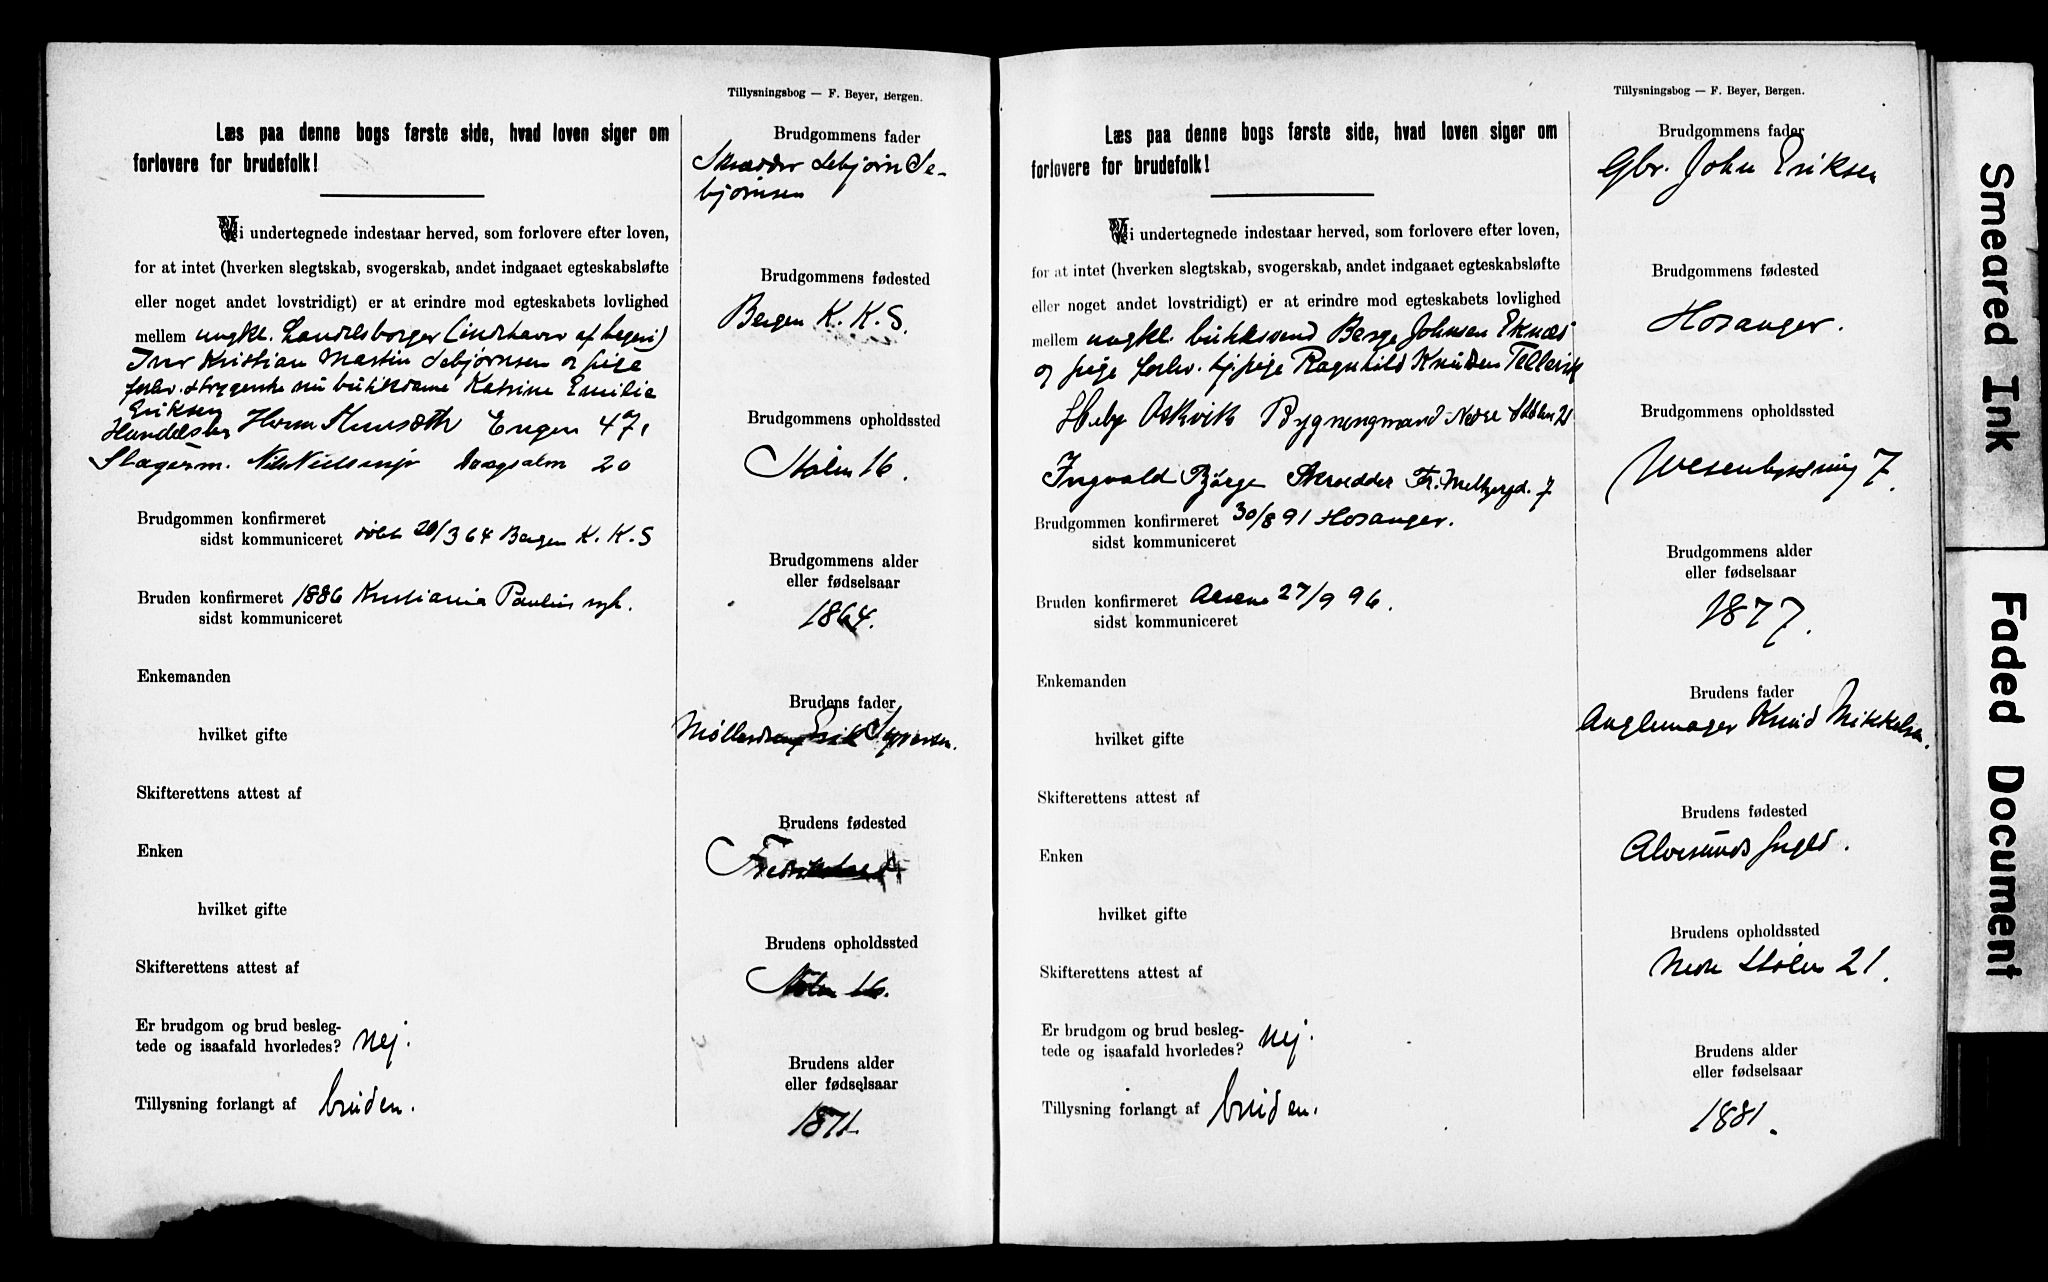 Tillysningsbog — F. Beyer, Bergen.
Læs paa denne bogs første side, hvad loven siger om
forlovere for brudefolk!
Vi undertegnede indestaar herved, som forlovere efter loven,
for at intet (hverken slegtskab, svogerskab, andet indgaaet egteskabsløfte
eller noget andet lovstridigt) er at erindre mod egteskabets lovlighed
mellem ungkl. Handelsborger (indehaver af
Iver Kristian Martin Sebjørnsen og pige
forlv. strygerske nu butikdame Katrine Emilie
Eriksen
Handelsbgr Engen 47,
Slagerm. Nils Nielsen jr 20
Brudgommen konfirmeret
sidst kommuniceret døbt 20/3 64 Bergen K. K. S
Bruden konfirmeret 1886 Kristiania Paulus
sidst kommuniceret
Enkemanden
hvilket gifte
Skifterettens attest af
Enken
hvilket gifte
Skifterettens attest af
Er brudgom og brud besleg-
tede og isaafald hvorledes? nej.
Tillysning forlangt af bruden.
Brudgommens fader
Skrædder Sebjørn Se-
bjørnsen
Brudgommens fødested
Bergen K. K. S.
Brudgommens opholdssted
Stølen 16.
Brudgommens alder
eller fødselsaar
1864.
Brudens fader
Erik Syversen.
Brudens fødested
Brudens opholdssted
Stølen 16.
Brudens alder
eller fødselsaar
1871
Tillysningsbog — F. Beyer, Bergen.
Læs paa denne bogs første side, hvad loven siger om
forlovere for brudefolk!
Vi undertegnede indestaar herved, som forlovere efter loven,
for at intet (hverken slegtskab, svogerskab, andet indgaaet egteskabsløfte
eller noget andet lovstridigt) er at erindre mod egteskabets lovlighed
mellem ungkl. butiksvend Berge Johnsen Eknæs
og pige forlv. tj. pige Ragnhild Knudsen
Oskvik Bygningsmand Nedre Stølen 21
Ingvald Bjørge Skrædder Fr. Meltzersgd. 7
Brudgommen konfirmeret 30/8 91 Hosanger.
sidst kommuniceret
Bruden konfirmeret Aasene 27/9 96.
sidst kommuniceret
Enkemanden
hvilket gifte
Skifterettens attest af
Enken
hvilket gifte
Skifterettens attest af
Er brudgom og brud besleg-
tede og isaafald hvorledes? nej.
Tillysning forlangt af bruden.
Brudgommens fader
Gbr. John Eriksen
Brudgommens fødested
Hosanger.
Brudgommens opholdssted
7.
Brudgommens alder
eller fødselsaar
1877.
Brudens fader
Anglemager Knud Mikkelsen.
Brudens fødested
Alversunds sogn.
Brudens opholdssted
Nedre Stølen 21.
Brudens alder
eller fødselsaar
1881.
Smeared Ink
Faded Document